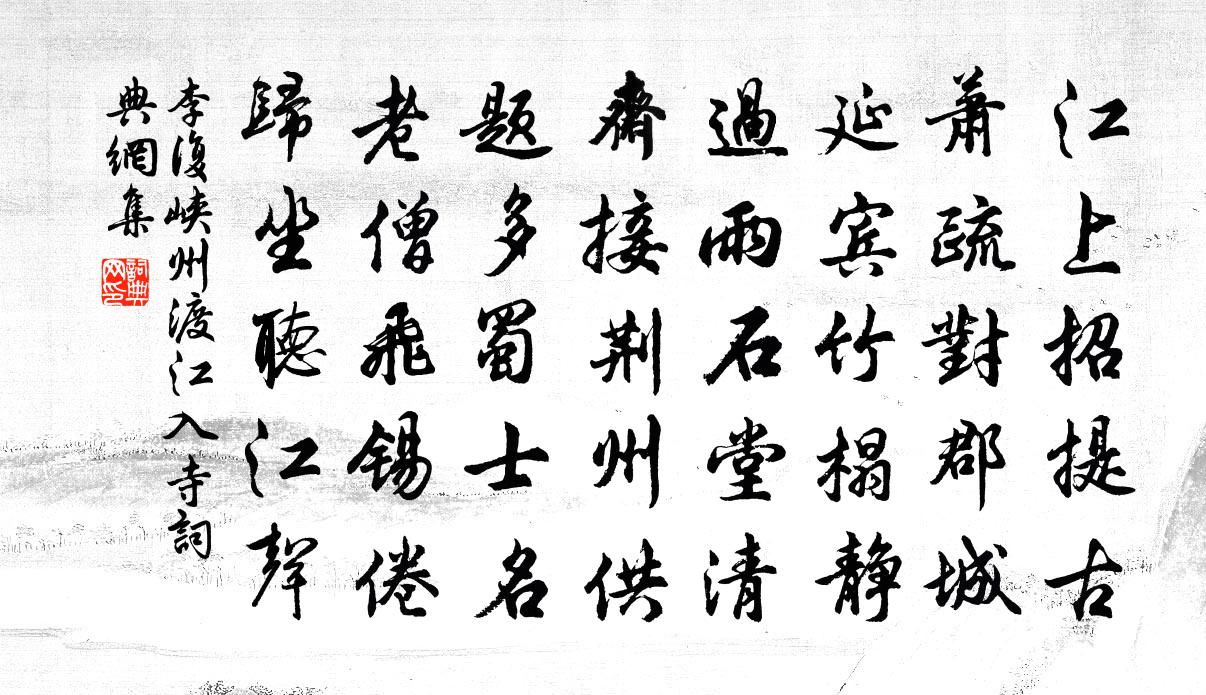 江上招提古
蕭疏對郡城
延宾竹榻静
過雨石堂清
齋接荆州供
题多蜀士名
老僧飛锡倦
歸坐聽江聲
李復峡州渡江入寺詞
典網集
詞典
网印